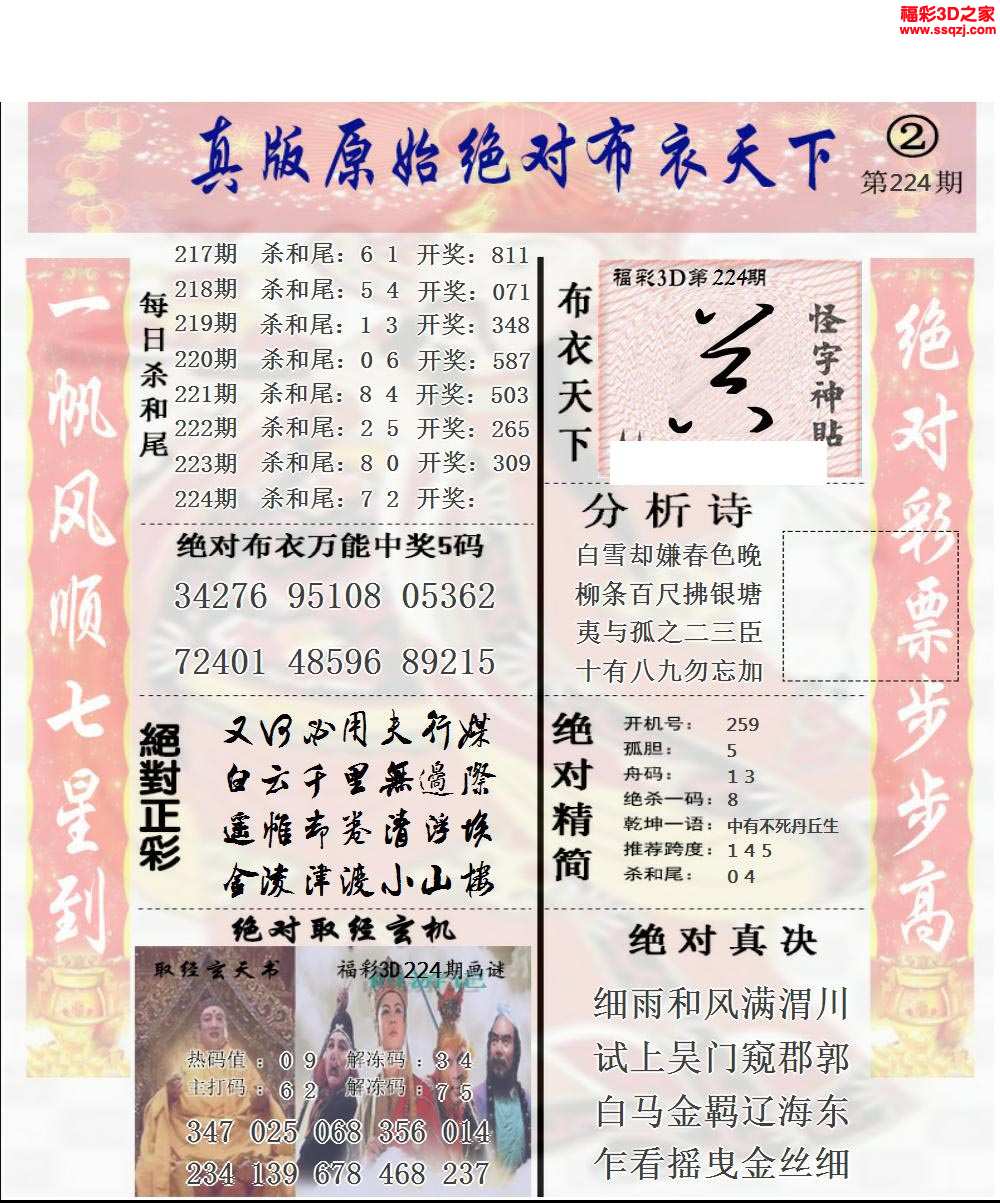 福彩3D之家
www.ssqzj.com
真版原始绝对布衣天下
②
第224期
一帆风顺七星到
每日杀和尾
217期 杀和尾：6 1 开奖：811
218期 杀和尾：5 4 开奖：071
219期 杀和尾：1 3 开奖：348
220期 杀和尾：0 6 开奖：587
221期 杀和尾：8 4 开奖：503
222期 杀和尾：2 5 开奖：265
223期 杀和尾：8 0 开奖：309
224期 杀和尾：7 2 开奖：
绝对布衣万能中奖5码
34276 95108 05362
72401 48596 89215
絕對正彩
又何必用夫行媒
白云千里無過際
遥帷却卷清浮埃
金陵津渡小山楼
绝对取经玄机
取经玄天书
福彩3D224期画谜
热码值：0 9 解冻码：3 4
主打码：6 2 解冻码：7 5
347 025 068 356 014
234 139 678 468 237
布衣天下
福彩3D第224期
怪字神貼
分析诗
白雪却嫌春色晚
柳条百尺拂银塘
夷与孤之二三臣
十有八九勿忘加
绝对精简
开机号： 259
孤胆： 5
舟码： 1 3
绝杀一码：8
乾坤一语：中有不死丹丘生
推荐跨度：1 4 5
杀和尾： 0 4
绝对真决
细雨和风满渭川
试上吴门窥郡郭
白马金羁辽海东
乍看摇曳金丝细
绝对彩票步步高